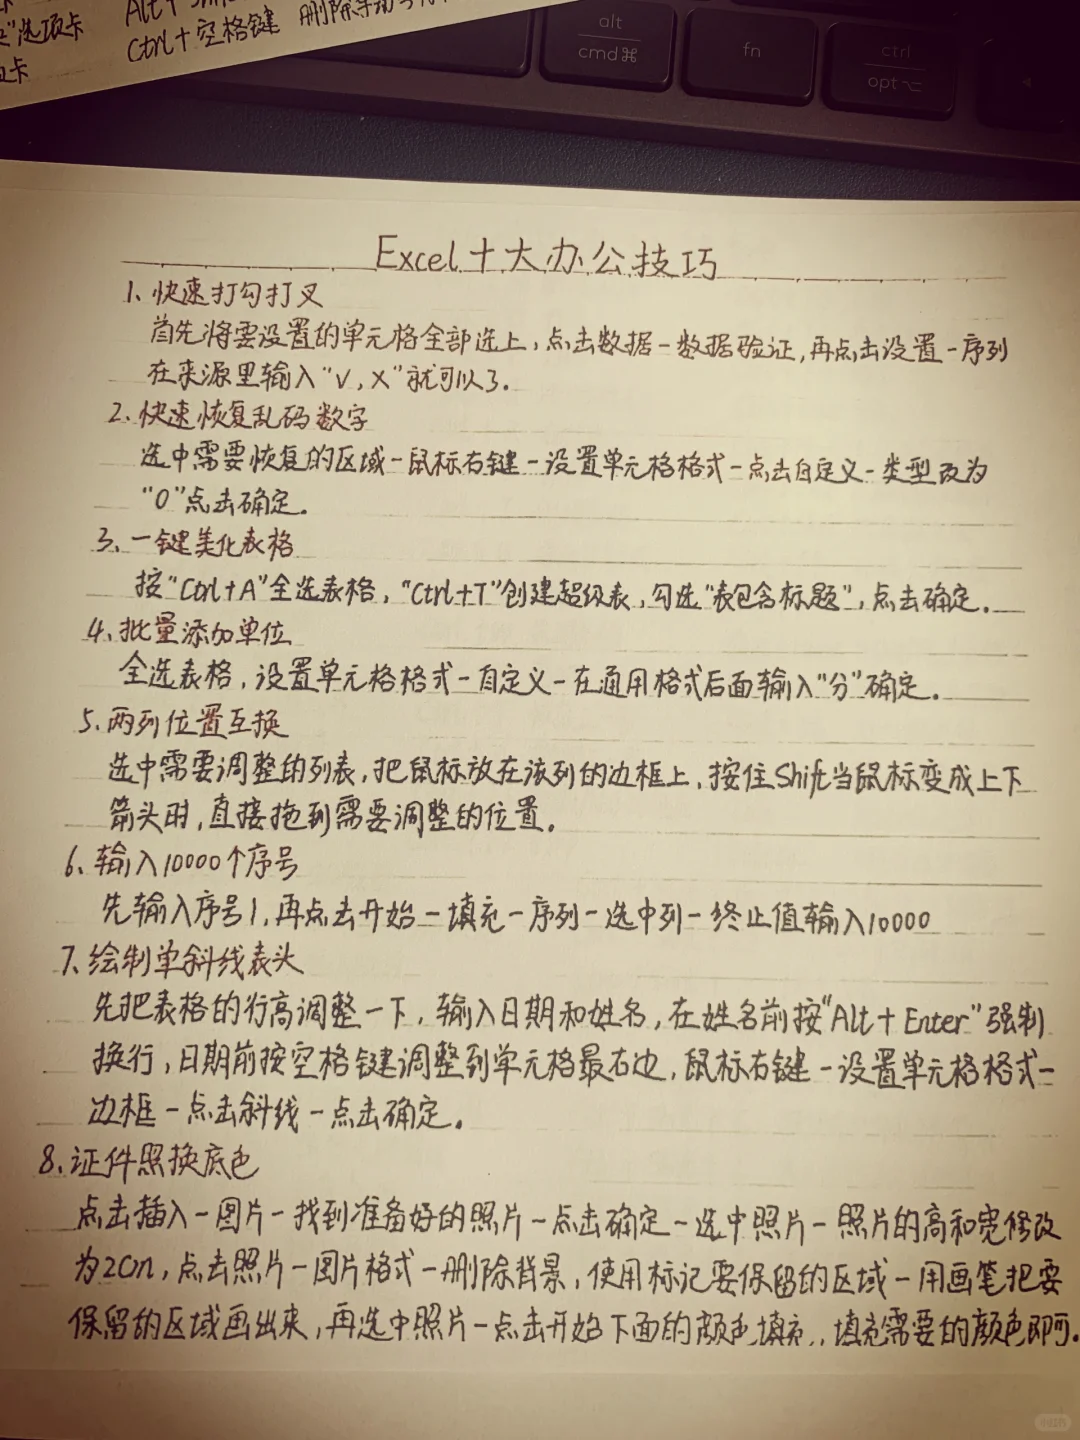 "选项卡
Ctrl+空格键
alt
cmd⌘
fn
ctrl
opt⌥
Excel十大办公技巧
1、快速打勾打叉
首先将要设置的单元格全部选上,点击数据-数据验证,再点击设置-序列
在来源里输入"√,×"就可以了.
2、快速恢复乱码数字
选中需要恢复的区域-鼠标右键-设置单元格格式-点击自定义-类型改为
"0"点击确定.
3、一键美化表格
按"Ctrl+A"全选表格,"Ctrl+T"创建超级表,勾选"表包含标题",点击确定.
4、批量添加单位
全选表格,设置单元格格式-自定义-在通用格式后面输入"分"确定.
5、两列位置互换
选中需要调整的列表,把鼠标放在该列的边框上,按住Shift当鼠标变成上下
箭头时,直接拖到需要调整的位置.
6、输入10000个序号
先输入序号1,再点击开始-填充-序列-选中列-终止值输入10000
7、绘制单斜线表头
先把表格的行高调整一下,输入日期和姓名,在姓名前按"Alt+Enter"强制
换行,日期前按空格键调整到单元格最右边,鼠标右键-设置单元格格式-
边框-点击斜线-点击确定.
8、证件照换底色
点击插入-图片-找到准备好的照片-点击确定-选中照片-照片的高和宽修改
为20m,点击照片-图片格式-删除背景,使用标记要保留的区域-用画笔把要
保留的区域画出来,再选中照片-点击开始下面的颜色填充,填充需要的颜色即可.
小红书